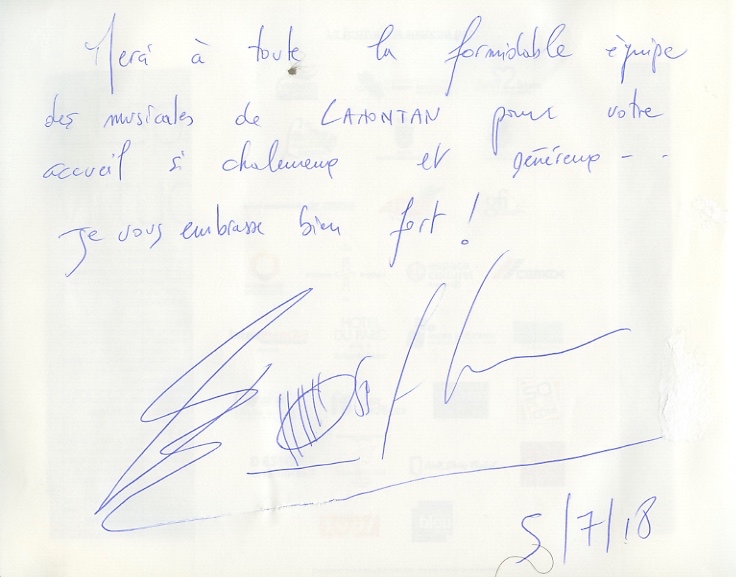 Merci à toute la formidable équipe
des musicales de LAHONTAN pour votre
accueil si chaleureux et généreux - -
Je vous embrasse bien fort !
5/7/18